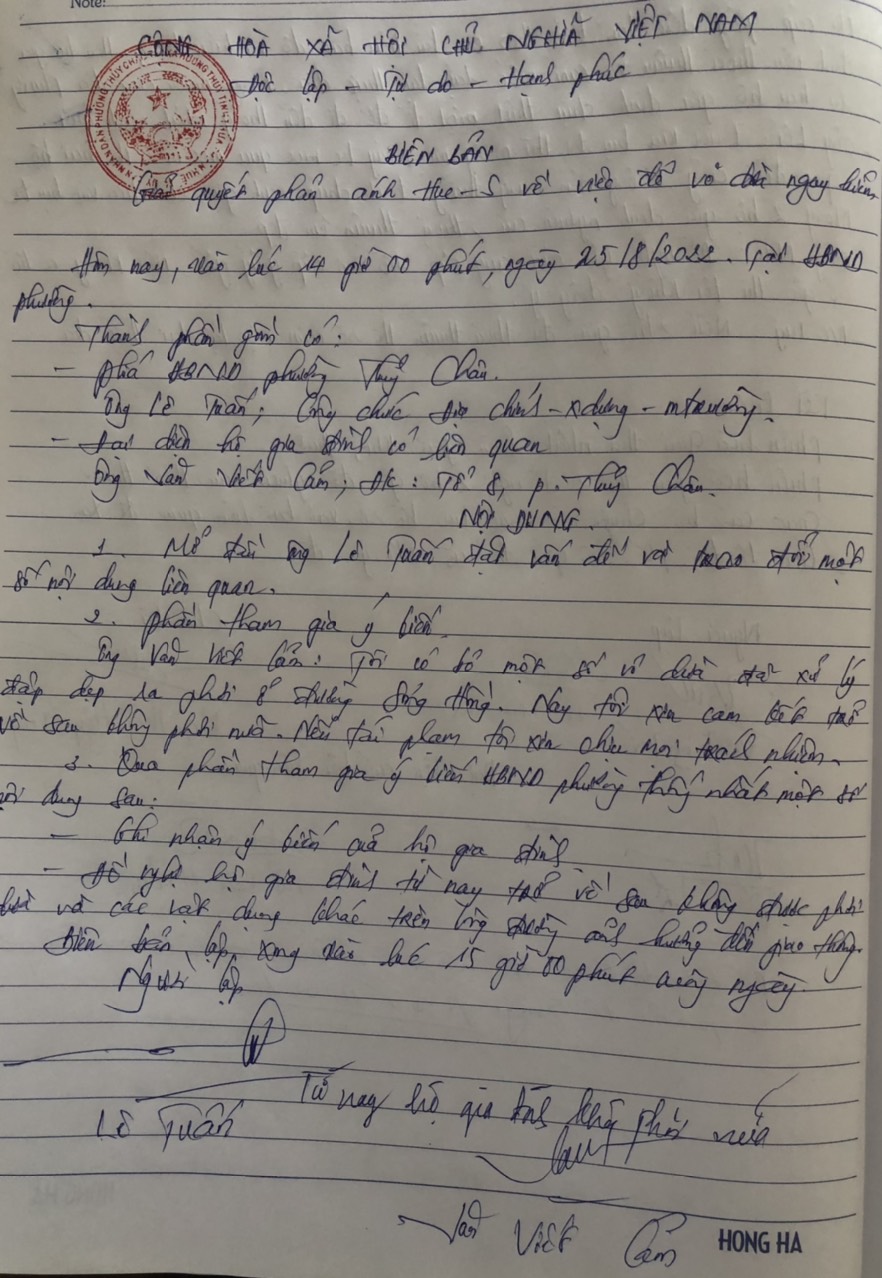 Note:
CỘNG HOÀ XÃ HỘI CHỦ NGHĨA VIỆT NAM
Độc lập - Tự do - Hạnh phúc
BIÊN BẢN
Giải quyết phản ánh Hue-S về việc đổ vỏ dừa ngay
Hôm nay, vào lúc 14 giờ 00 phút, ngày 25/8/2022. Tại UBND
phường.
Thành phần gồm có:
- phía UBND phường Thuỷ Châu.
Ông Lê Tuấn; Công chức địa chính - x dựng - m trường.
- Đại diện hộ gia đình có liên quan
Ông Văn Viết Cẩm; ĐK: Tổ 8, p. Thuỷ Châu.
NỘI DUNG.
1. Mở đầu ông Lê Tuấn đặt vấn đề và trao đổi một
số nội dung liên quan.
2. phần tham gia ý kiến.
Ông Văn Viết Cẩm: Tôi có bỏ một số vỏ dừa đã xử lý
đập dẹp ra phơi ở đường Sóng Hồng. Nay tôi xin cam kết trở
về sau không phơi nữa. Nếu tái phạm tôi xin chịu mọi trách nhiệm.
3. Qua phần tham gia ý kiến UBND phường thống nhất một số
nội dung sau:
- Ghi nhận ý kiến của hộ gia đình
- Đề nghị hộ gia đình từ nay trở về sau không được phơi
dừa và các vật dụng khác trên lòng đường ảnh hưởng đến giao thông.
Biên bản lập xong vào lúc 15 giờ 00 phút cùng ngày.
Người lập
Từ nay hộ gia đình không phơi nữa
Lê Tuấn
Văn Viết Cẩm
HONG HA